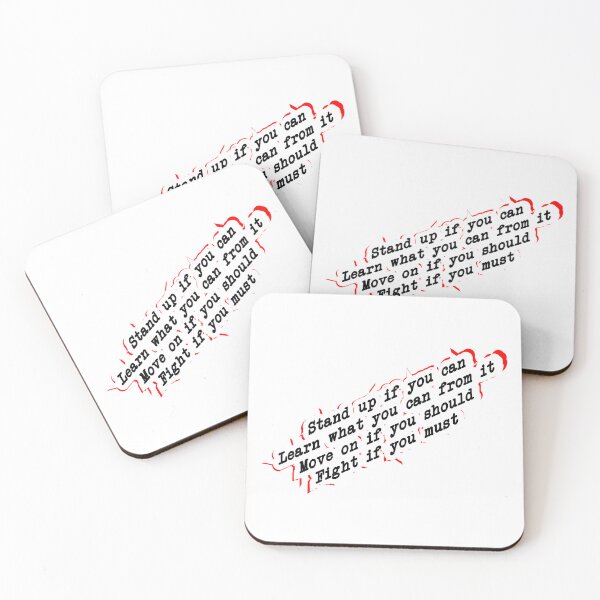 Stand up if you can
can from it
should
must
Stand up if you can
Learn what you can from it
Move on if you should
Fight if you must
Stand up if you can
Learn what you can from it
Move on if you should
Fight if you must
Stand up if you can
Learn what you can from it
Move on if you should
Fight if you must